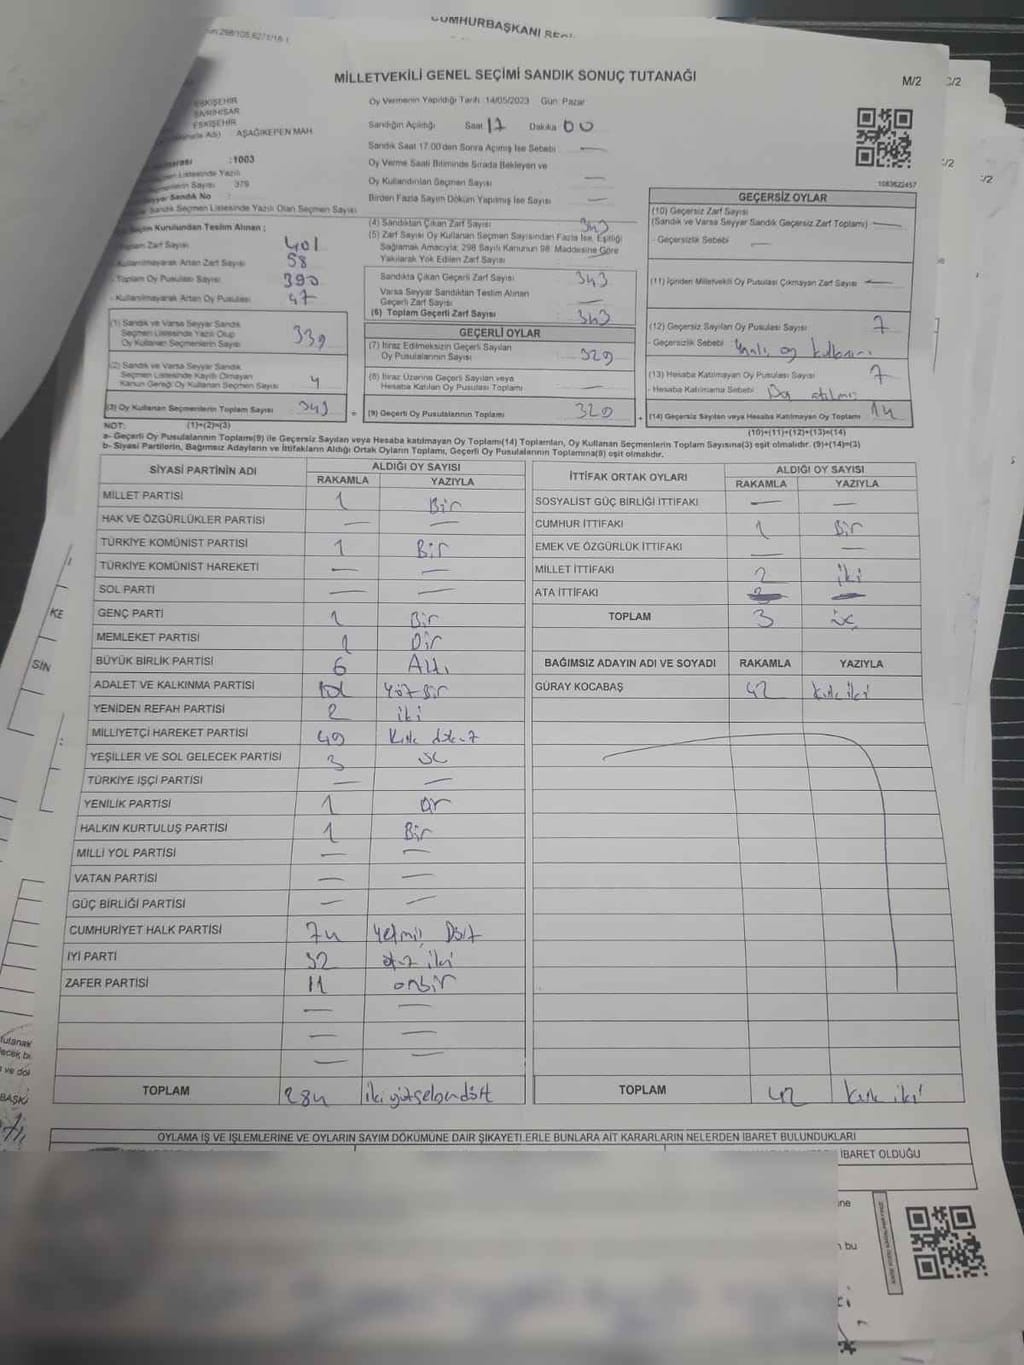 CUMHURBAŞKANI
MİLLETVEKİLİ GENEL SEÇİMİ SANDIK SONUÇ TUTANAĞI
M/2
ESKİŞEHİR
SİVRİHİSAR
ESKİŞEHİR
AŞAĞIKEPEN MAH.
:1003
Seçmen Listesinde Yazılı
Seçmenlerin Sayısı 379
Seyyar Sandık No :
Sandık Seçmen Listesinde Yazılı Olan Seçmen Sayısı
Seçim Kurulundan Teslim Alınan ;
Toplam Zarf Sayısı 401
Kullanılmayarak Artan Zarf Sayısı 58
- Toplam Oy Pusulası Sayısı 390
- Kullanılmayarak Artan Oy Pusulası 47
(1) Sandık ve Varsa Seyyar Sandık
Seçmen Listesinde Yazılı Olup
Oy Kullanan Seçmenlerin Sayısı 339
(2) Sandık ve Varsa Seyyar Sandık
Seçmen Listesinde Kayıtlı Olmayan
Kanun Gereği Oy Kullanan Seçmen Sayısı 4
(3) Oy Kullanan Seçmenlerin Toplam Sayısı 343
Oy Vermenin Yapıldığı Tarih 14/05/2023 Gün: Pazar
Sandığın Açıldığı Saat 17 Dakika 00
Sandık Saat 17:00'den Sonra Açılmış İse Sebebi —
Oy Verme Saati Bitiminde Sırada Bekleyen ve
Oy Kullandırılan Seçmen Sayısı —
Birden Fazla Sayım Döküm Yapılmış İse Sayısı —
(4) Sandıktan Çıkan Zarf Sayısı 343
(5) Zarf Sayısı Oy Kullanan Seçmen Sayısından Fazla İse, Eşitliği
Sağlamak Amacıyla; 298 Sayılı Kanunun 98. Maddesine Göre
Yakılarak Yok Edilen Zarf Sayısı
Sandıkta Çıkan Geçerli Zarf Sayısı 343
Varsa Seyyar Sandıktan Teslim Alınan
Geçerli Zarf Sayısı —
(6) Toplam Geçerli Zarf Sayısı 343
GEÇERLİ OYLAR
(7) İtiraz Edilmeksizin Geçerli Sayılan
Oy Pusulalarının Sayısı 329
(8) İtiraz Üzerine Geçerli Sayılan veya
Hesaba Katılan Oy Pusulası Toplamı —
= (9) Geçerli Oy Pusulalarının Toplamı 329 +
1083622457
GEÇERSİZ OYLAR
(10) Geçersiz Zarf Sayısı
(Sandık ve Varsa Seyyar Sandık Geçersiz Zarf Toplamı) —
- Geçersizlik Sebebi —
(11) İçinden Milletvekili Oy Pusulası Çıkmayan Zarf Sayısı —
(12) Geçersiz Sayılan Oy Pusulası Sayısı 7
- Geçersizlik Sebebi oy kullanımı
(13) Hesaba Katılmayan Oy Pusulası Sayısı 7
- Hesaba Katılmama Sebebi Boş atılmış
(14) Geçersiz Sayılan veya Hesaba Katılmayan Oy Toplamı 14
NOT: (1)+(2)=(3) (10)+(11)+(12)+(13)=(14)
a- Geçerli Oy Pusulalarının Toplamı(9) ile Geçersiz Sayılan veya Hesaba katılmayan Oy Toplamı(14) Toplamları, Oy Kullanan Seçmenlerin Toplam Sayısına(3) eşit olmalıdır. (9)+(14)=(3)
b- Siyasi Partilerin, Bağımsız Adayların ve İttifakların Aldığı Ortak Oyların Toplamı, Geçerli Oy Pusulalarının Toplamına(9) eşit olmalıdır.
SİYASİ PARTİNİN ADI ALDIĞI OY SAYISI
RAKAMLA YAZIYLA
MİLLET PARTİSİ 1 Bir
HAK VE ÖZGÜRLÜKLER PARTİSİ — —
TÜRKİYE KOMÜNİST PARTİSİ 1 Bir
TÜRKİYE KOMÜNİST HAREKETİ — —
SOL PARTİ — —
GENÇ PARTİ 1 Bir
MEMLEKET PARTİSİ 1 Bir
BÜYÜK BİRLİK PARTİSİ 6 Altı
ADALET VE KALKINMA PARTİSİ 101 Yüz Bir
YENİDEN REFAH PARTİSİ 2 iki
MİLLİYETÇİ HAREKET PARTİSİ 49 Kırk dokuz
YEŞİLLER VE SOL GELECEK PARTİSİ 3 üç
TÜRKİYE İŞÇİ PARTİSİ — —
YENİLİK PARTİSİ 1 Bir
HALKIN KURTULUŞ PARTİSİ 1 Bir
MİLLİ YOL PARTİSİ — —
VATAN PARTİSİ — —
GÜÇ BİRLİĞİ PARTİSİ — —
CUMHURİYET HALK PARTİSİ 74 Yetmiş Dört
İYİ PARTİ 32 otuz iki
ZAFER PARTİSİ 11 onbir
— —
— —
— —
TOPLAM 284 iki yüz seksen dört
İTTİFAK ORTAK OYLARI ALDIĞI OY SAYISI
RAKAMLA YAZIYLA
SOSYALİST GÜÇ BİRLİĞİ İTTİFAKI — —
CUMHUR İTTİFAKI 1 Bir
EMEK VE ÖZGÜRLÜK İTTİFAKI — —
MİLLET İTTİFAKI 2 iki
ATA İTTİFAKI
TOPLAM 3 üç
BAĞIMSIZ ADAYIN ADI VE SOYADI RAKAMLA YAZIYLA
GÜRAY KOCABAŞ 42 kırk iki
TOPLAM 42 kırk iki
OYLAMA İŞ VE İŞLEMLERİNE VE OYLARIN SAYIM DÖKÜMÜNE DAİR ŞİKAYETLERLE BUNLARA AİT KARARLARIN NELERDEN İBARET BULUNDUKLARI
İBARET OLDUĞU